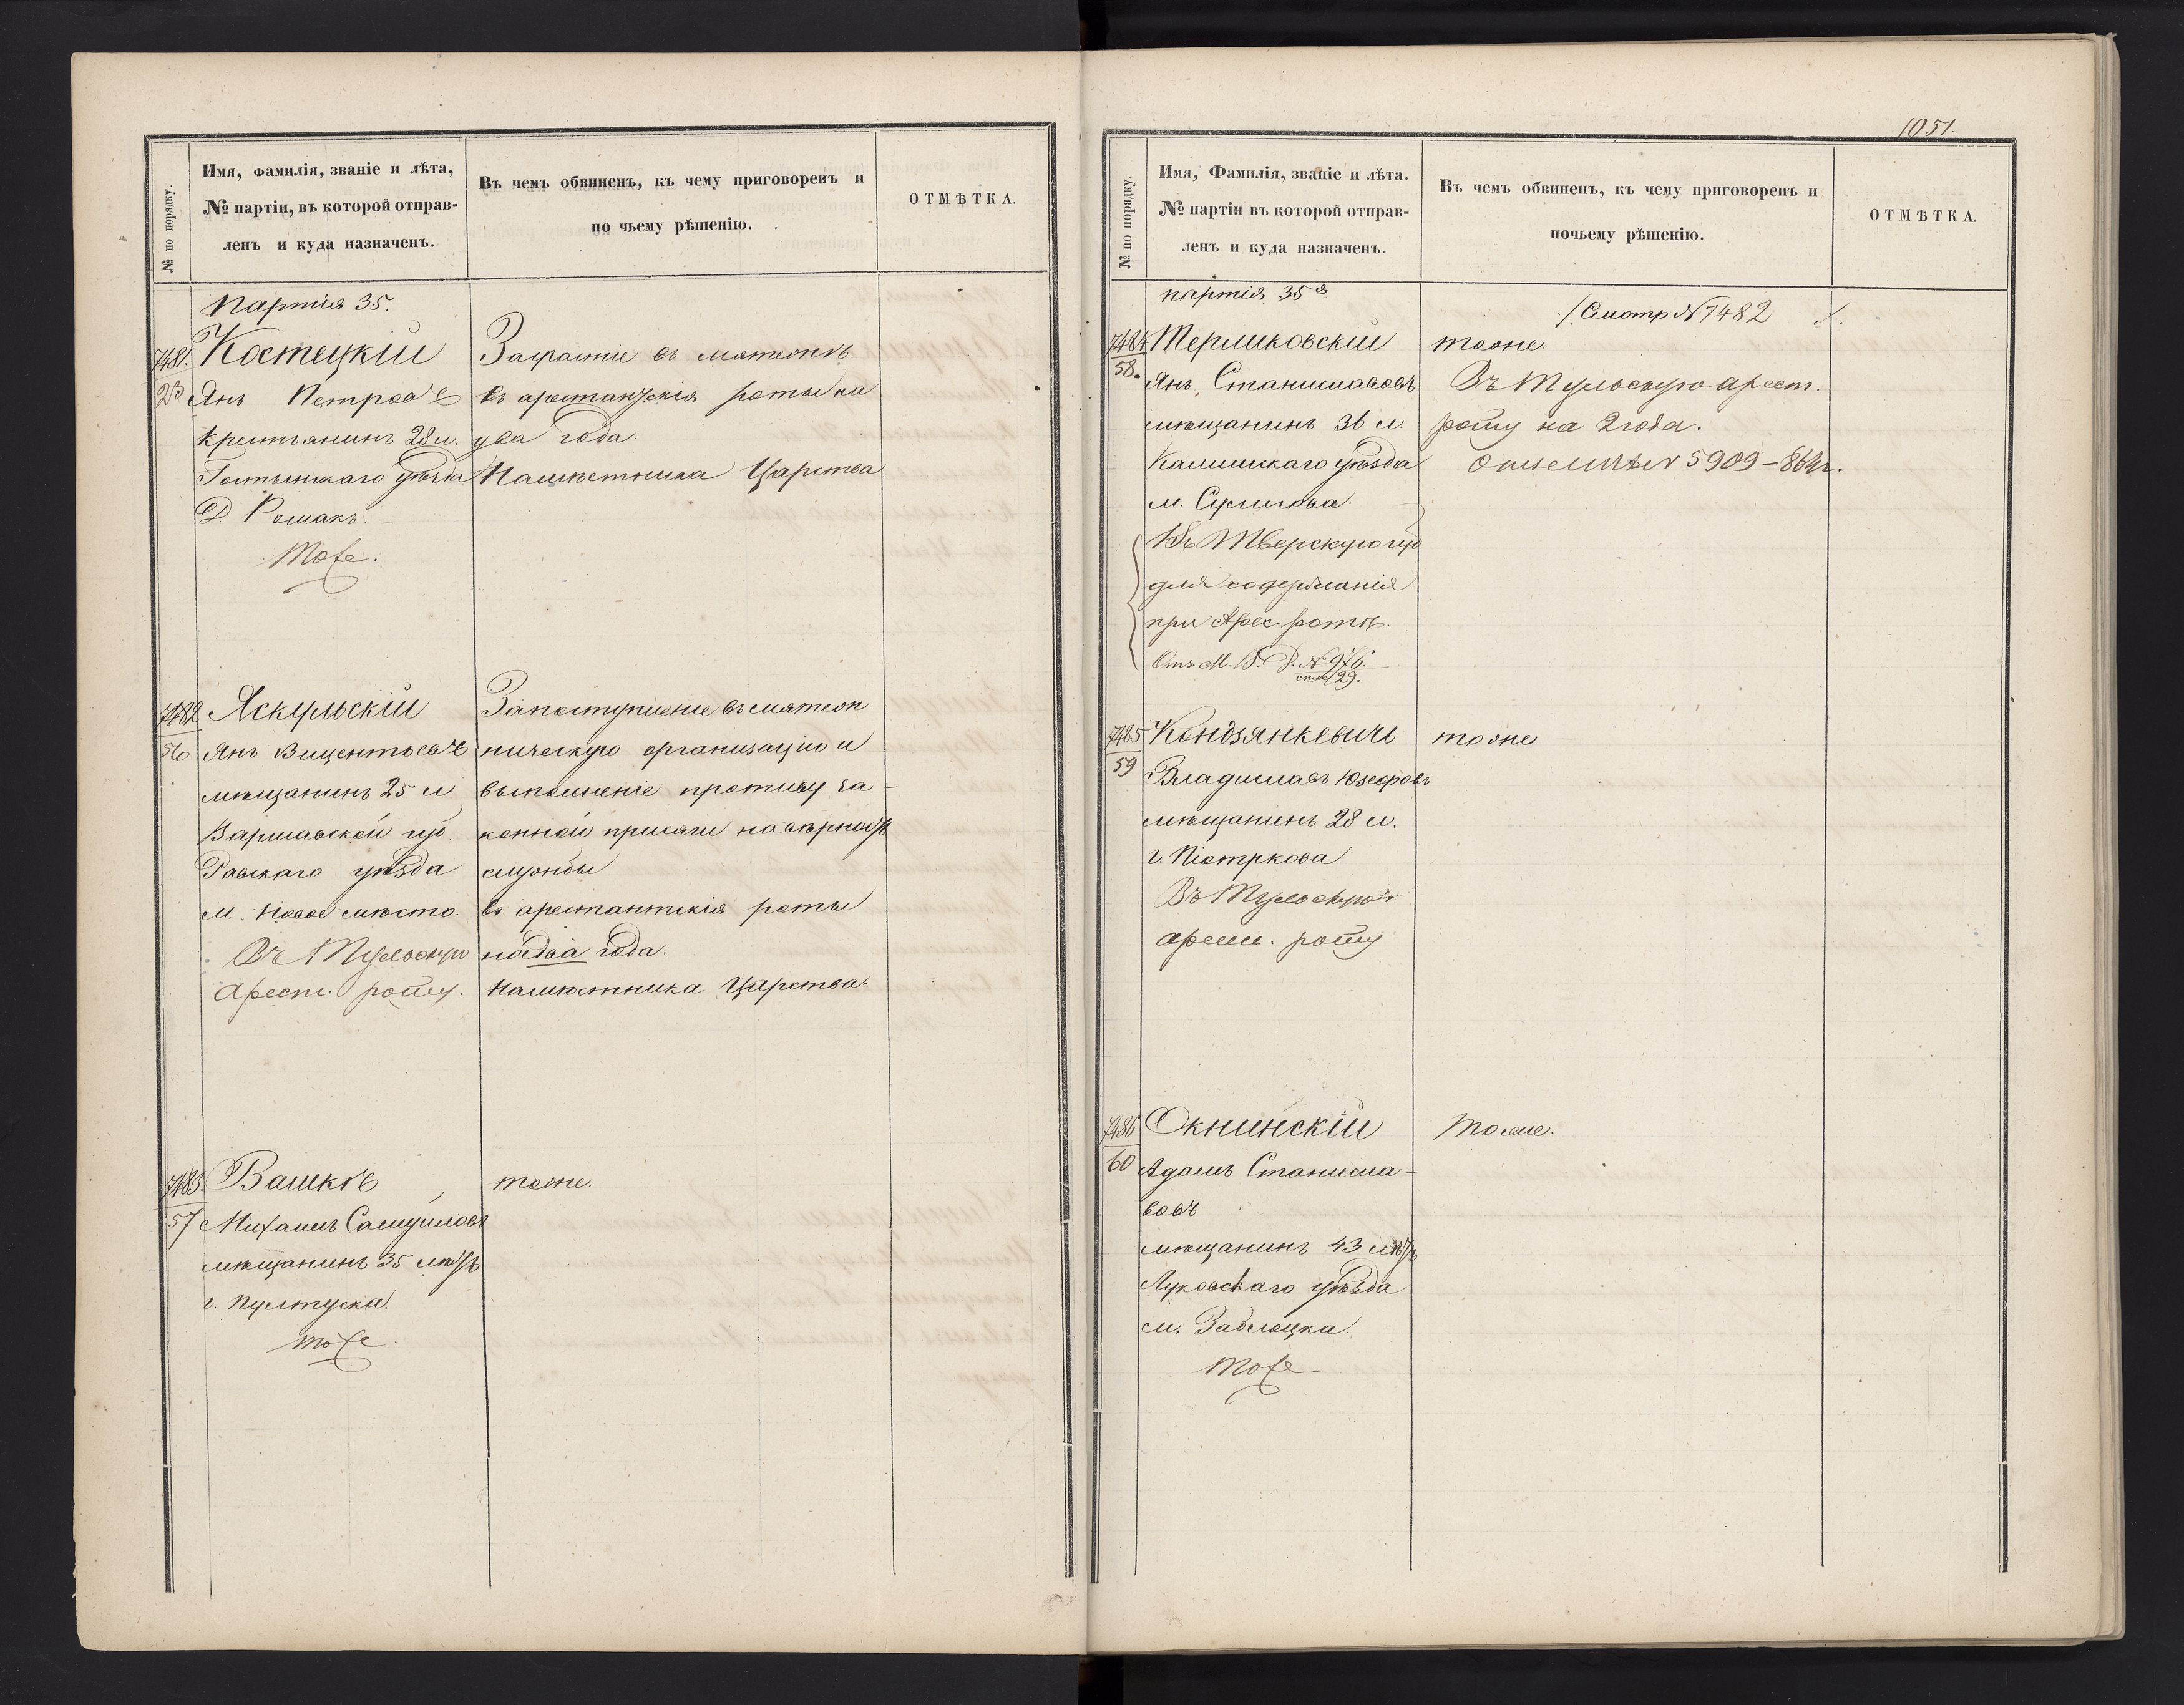 № по порядку.
Имя, Фамилія, званіе и лѣта,
№ партіи, въ которой отправ-
ленъ и куда назначенъ.
Въ чемъ обвиненъ, къ чему приговоренъ и
по чьему рѣшенію.
ОТМѢТКА.
Партія 35.
7481.
23
Костецкій
Янъ Петровъ
крестьянинъ 28 л.
Гостынскаго уѣзда
Д.
Тоже.
За участіе въ мятежѣ
въ арестантскія роты на
два года
Намѣстника Царства
7482
56
Яскульскій
Янъ Вицентьевъ
мѣщанинъ 25 л
Варшавской губ.
Равскаго уѣзда
м. Новое мѣсто.
Въ Тульскую
Арест. роту.
За поступленіе въ мятеж
ническую организацію и
выполненіе противу за-
конной присяги на вѣрность
службы
въ арестантскія роты
на два года.
Намѣстника Царства.
7483.
57
Вашкѣ
Михаилъ Самуиловъ
мѣщанинъ 35 лѣтъ
г. Пултуска.
тоже.
тоже.
1051.
№ по порядку.
Имя, Фамилія, званіе и лѣта.
№ партіи въ которой отправ-
ленъ и куда назначенъ.
Въ чемъ обвиненъ, къ чему приговоренъ и
почьему рѣшенію.
ОТМѢТКА.
партія 35я
/Смотр № 7482
7484
58.
Термиковскій
Янъ Станиславовъ
мѣщанинъ 36 л.
Калишскаго уѣзда
м.
Въ Тверскую губ
для содержанія
при Арес. ротѣ.
Отъ М. В. Д. № 976
29.
тоже
Въ Тульскую арест.
роту на 2 года.
№ 5909-864г.
7485
59
Кондзянкевичъ
Владиславъ Юзефовъ
мѣщанинъ 28 л.
г. Піотркова
Въ Тульскую
арест. роту
тоже
7486
60
Окнинскій
Адамъ Станисла-
вовъ
мѣщанинъ 43 лѣтъ
Луковскаго уѣзда
м. Заблоцка.
Тоже-
Тоже.